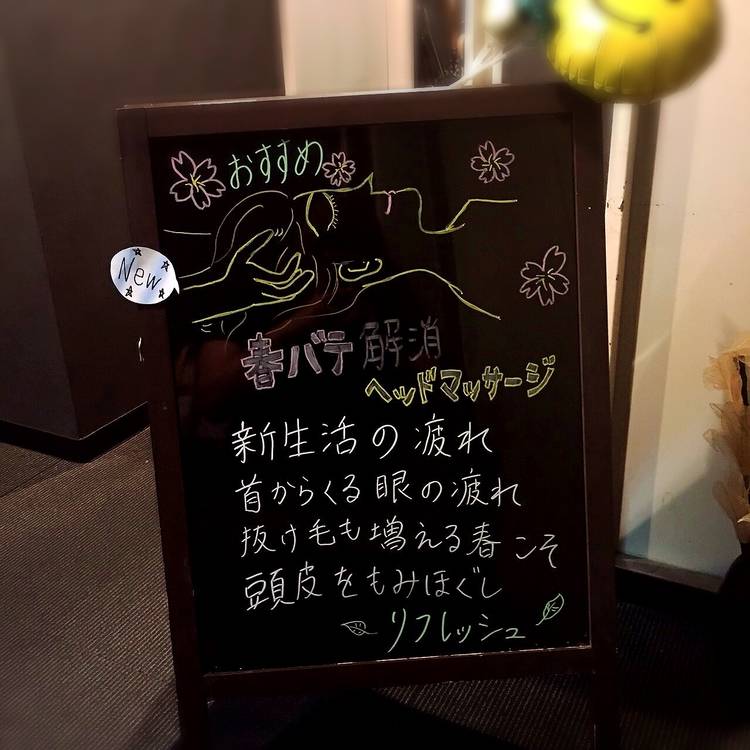 おすすめ
New
春バテ解消
ヘッドマッサージ
新生活の疲れ
首からくる眼の疲れ
抜け毛も増える春こそ
頭皮をもみほぐし
リフレッシュ